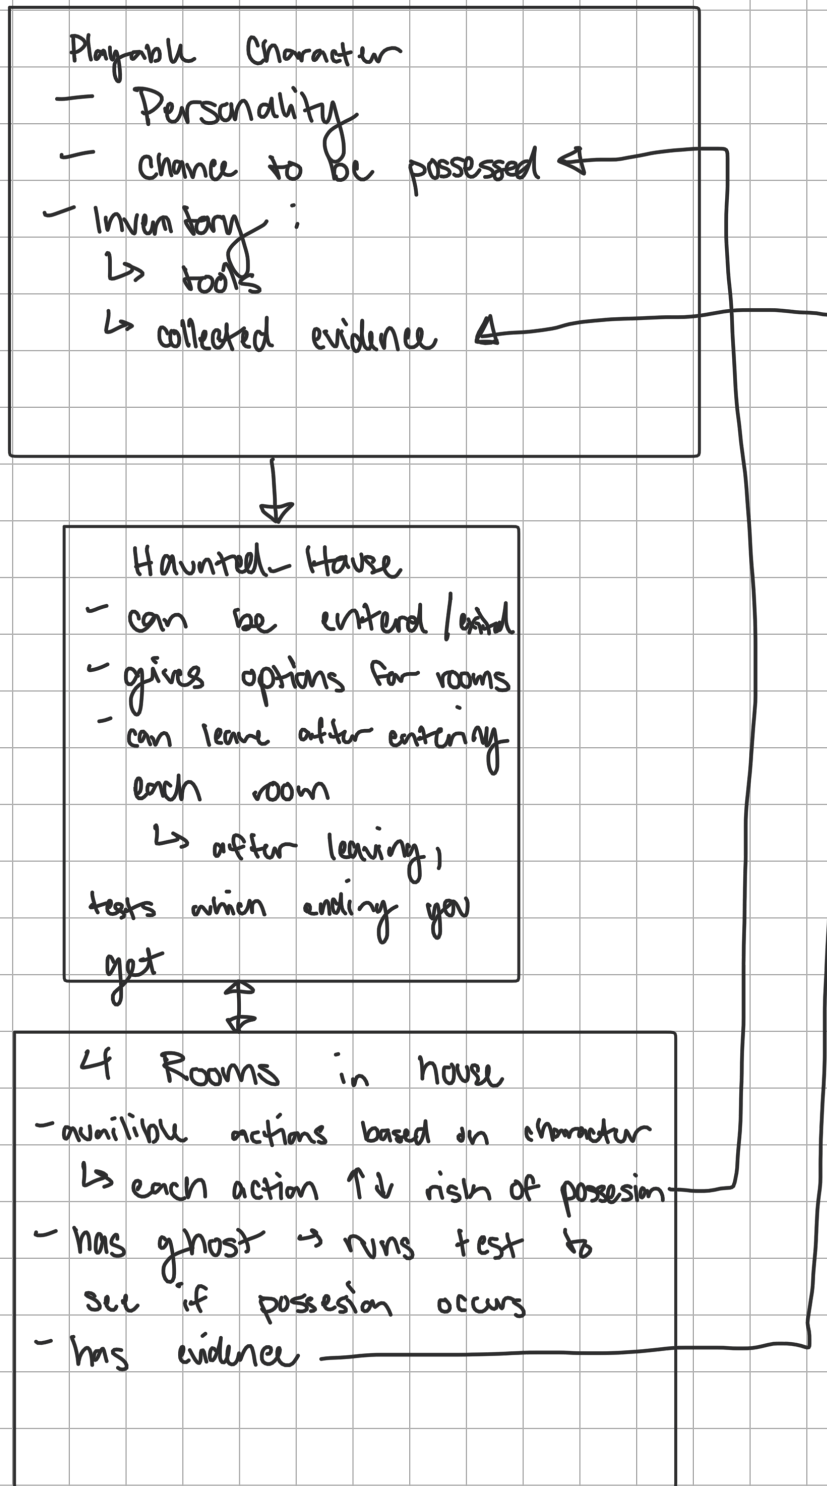 Playable Character
- Personality
- chance to be possessed
- Inventory :
↳ tools
↳ collected evidence
Haunted_House
- can be enterd / exitd
- gives options for rooms
- can leave after entering
each room
↳ after leaving,
tests which ending you
get
4 Rooms in house
- availible actions based on character
↳ each action ↑↓ risk of possesion
- has ghost → runs test to
see if possesion occurs
- has evidence